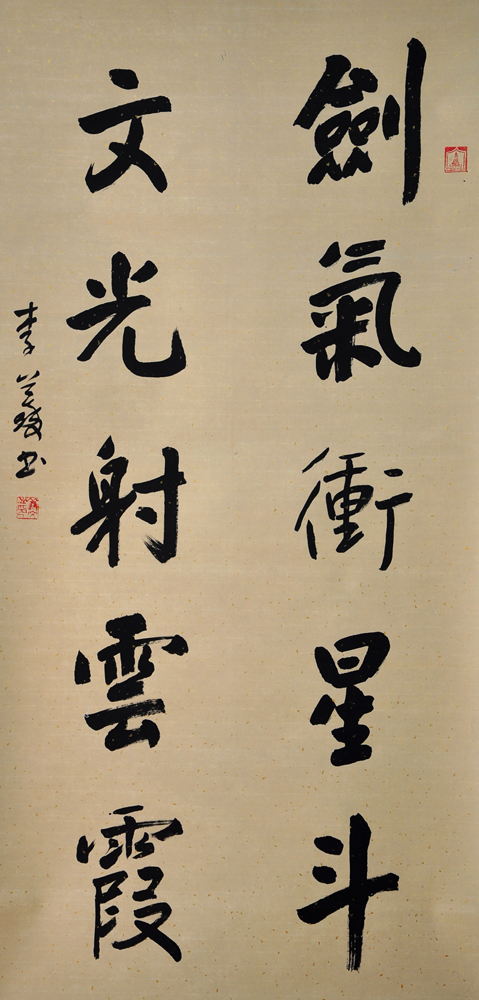 劍氣衝星斗
文光射雲霞
李義書